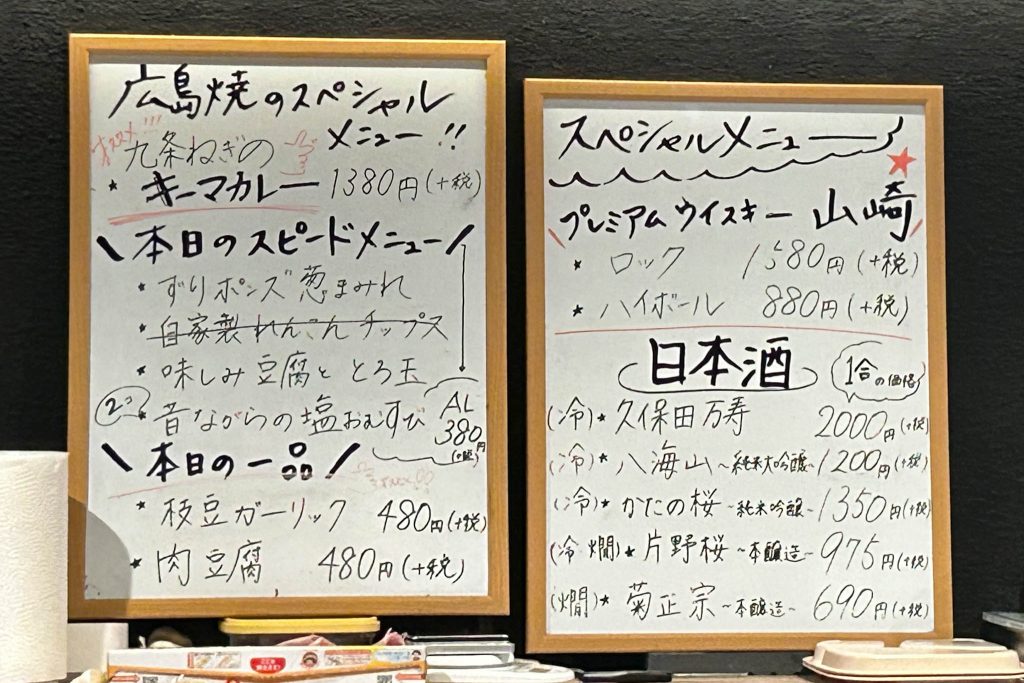 広島焼のスペシャル
メニュー!!
オススメ!!!
九条ねぎの
★ キーマカレー 1380円(+税)
\本日のスピードメニュー/
★ ずりポンズ葱まみれ
★ 自家製れんこんチップス
★ 味しみ豆腐ととろ玉
2コ ★ 昔ながらの塩おむすび
AL
380円
(+税)
\本日の一品/
★ 枝豆ガーリック 480円(+税)
★ 肉豆腐 480円(+税)
スペシャルメニュー
プレミアムウイスキー 山崎
★ ロック 1580円(+税)
★ ハイボール 880円(+税)
日本酒
1合の価格
(冷)★ 久保田万寿 2000円(+税)
(冷)★ 八海山~純米大吟醸~1200円(+税)
(冷)★ かたの桜~純米吟醸~1350円(+税)
(冷燗)★ 片野桜~本醸造~975円(+税)
(燗)★ 菊正宗~本醸造~690円(+税)